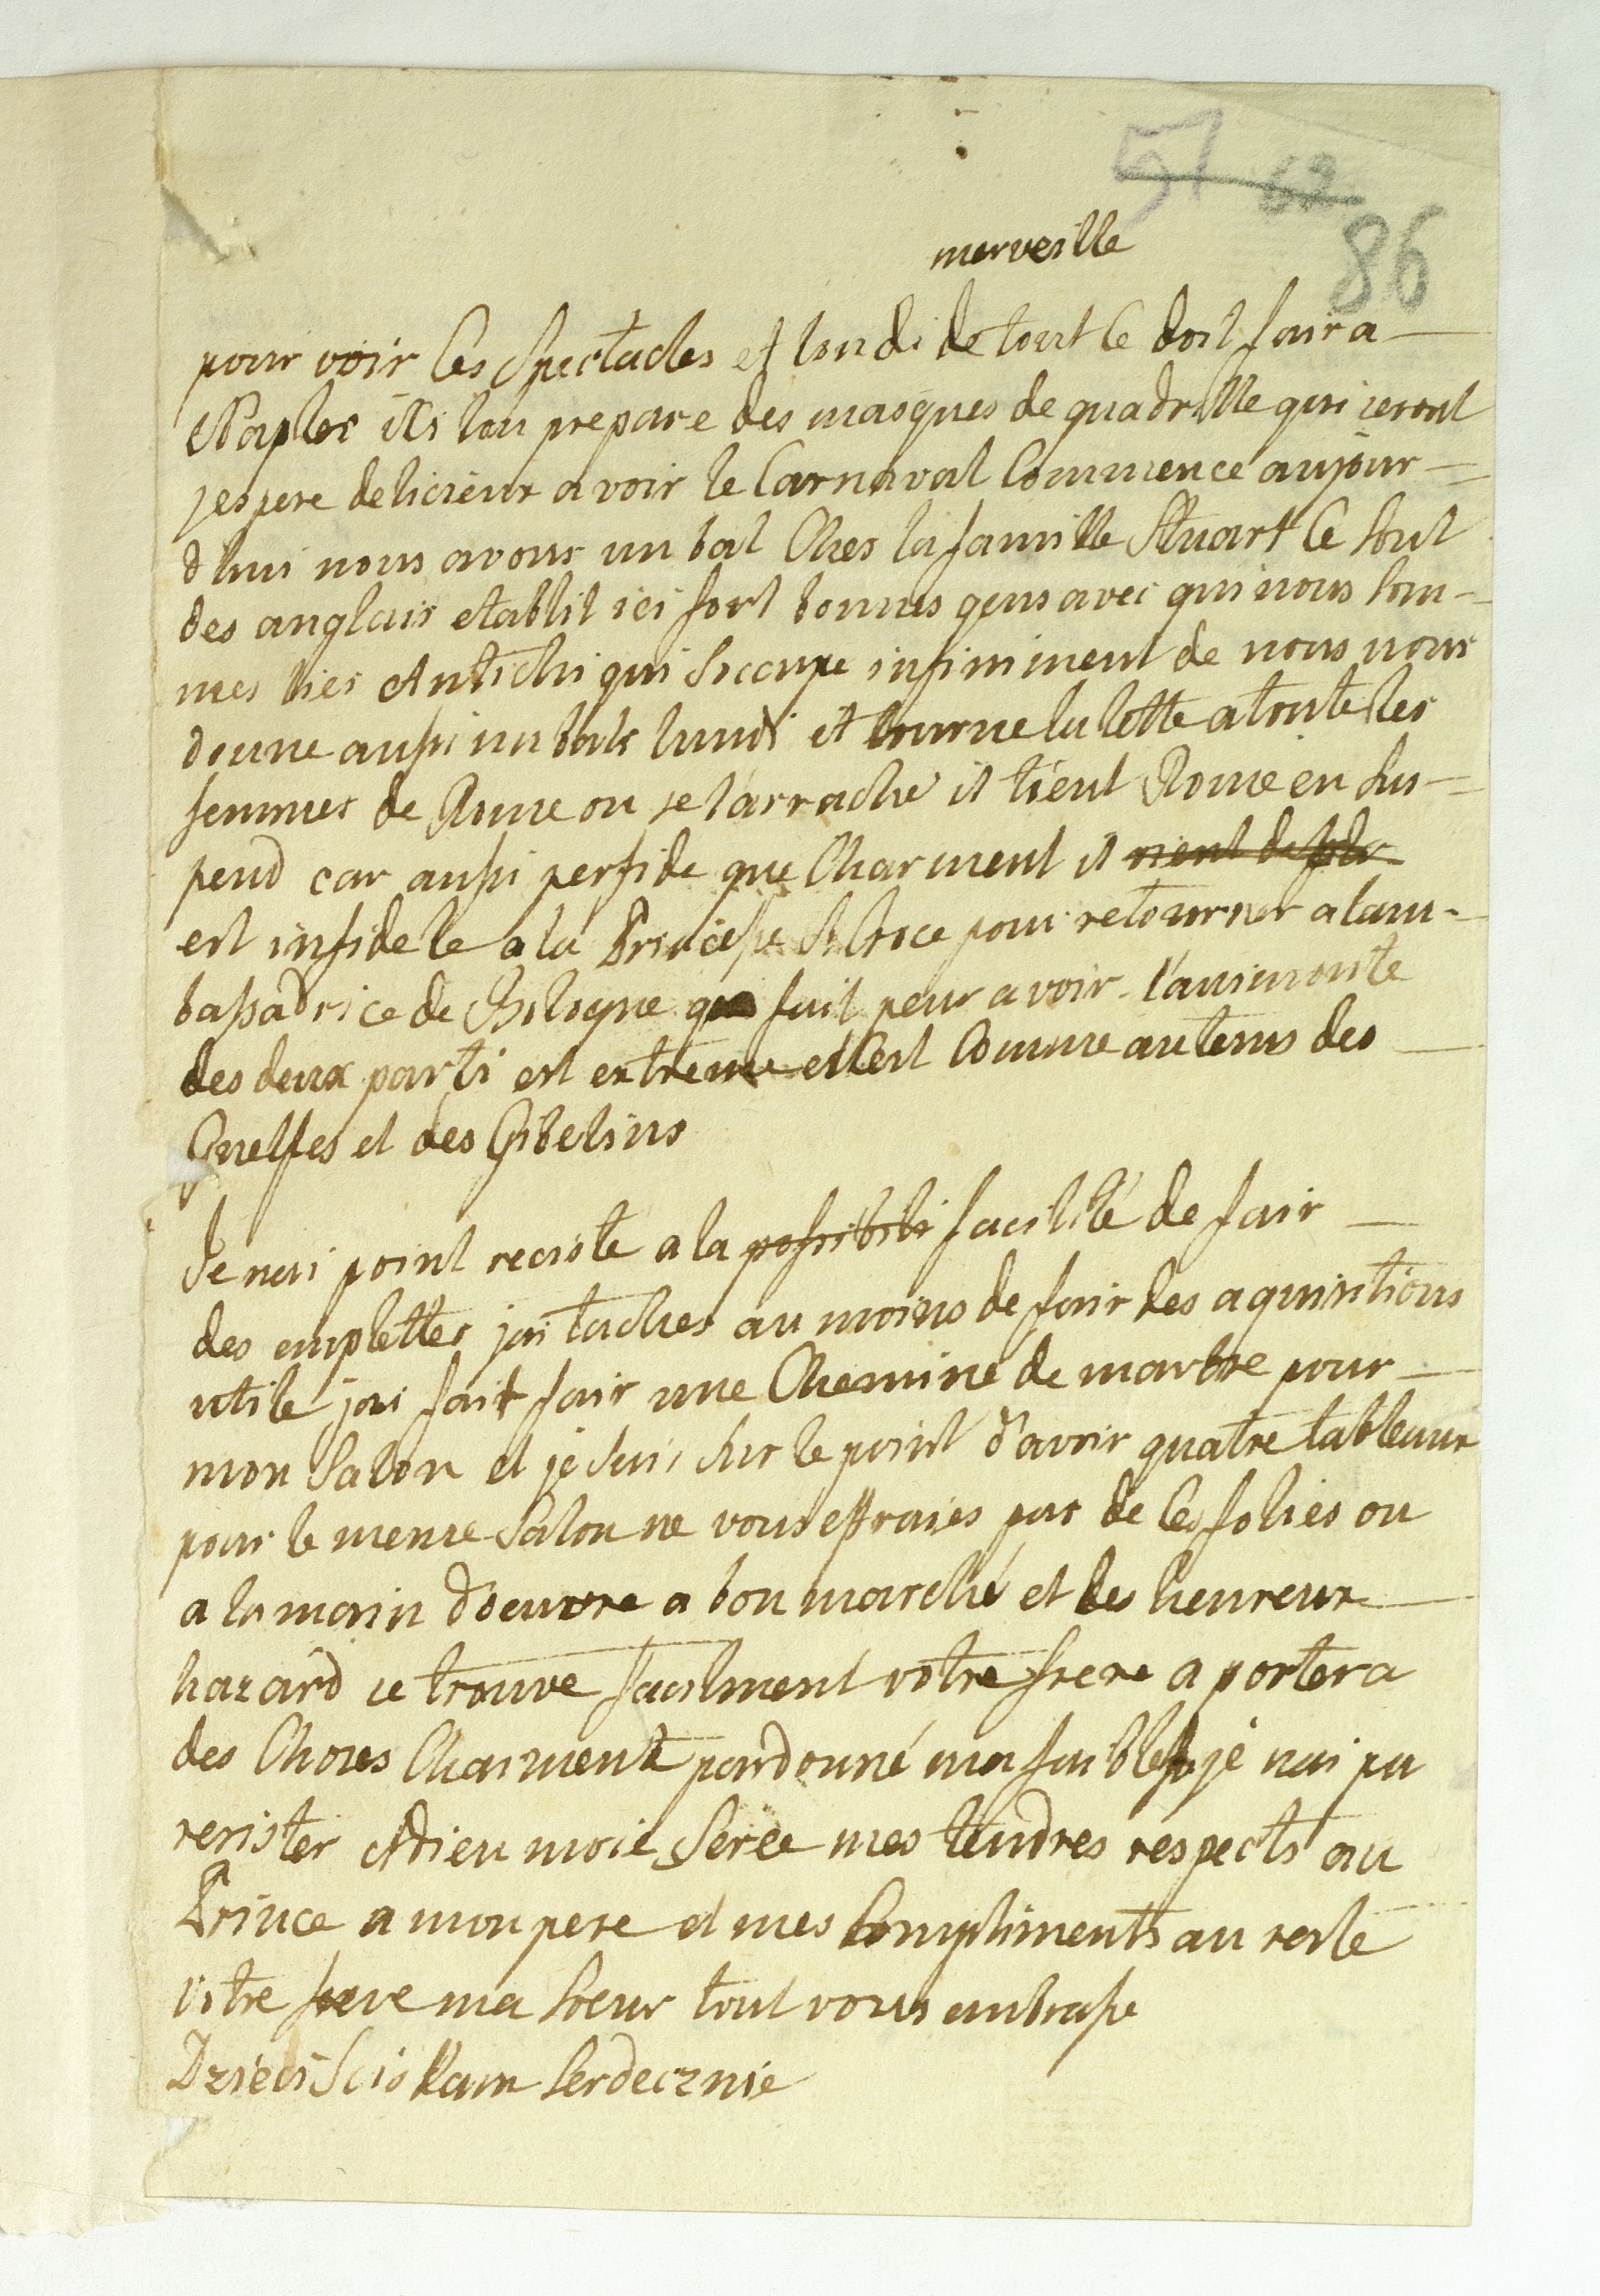 57 62
86
merveille
pour voir les Spectacles et lon di de tout Ce doit fair a
Naples ils lon prepare des masques de quadrille qui seront
jespere delicieux a voir le Carnaval Commence aujour=
d'hui nous avons un bal Ches la famille Stuart Ce sont
des anglais etablit ici fort bonnes gens avec qui nous som-
mes lies Antichi qui soccupe infiniment de nous nous
donne aussi un bals lundi et tourne la tette a toute les
femmes de Rome on se larrache il tient Rome en sus=
pend car aussi perfide que Charment il vient de
est infidele a la Princesse pour retourner a lam-
bassadrice de qui fait peur a voir l'animosite
des deux parti est extreme et Cest Comme au tems des
Guelfes et des Gibelins
Je nai point reciste a la possibili facilité de fair
des emplettes jai taches au moins de fair des aquisitions
utile jai fait fair une Cheminé de marbre pour
mon Salon et je suis sur le point d'avoir quatre tableaux
pour le meme Salon ne vous effraies pas de Ces folies on
a la main d'oeuvre a bon marché et des heureux
hazard se trouve facilment votre frere aportera
des Choses Charment pardonné ma faiblesse je nai pu
resister Adieu moie Serce mes tendres respects au
Prince a mon pere et mes Compliments au reste
votre frere ma Soeur tout vous embrasse
Dzieci Sciskam Serdecznie